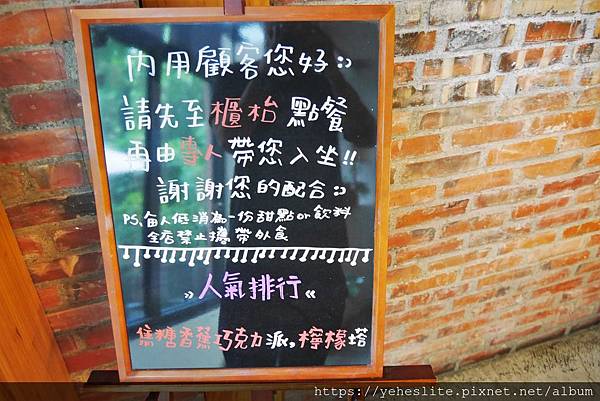 內用顧客您好:)
請先至櫃枱點餐
再由專人帶您入坐!!
謝謝您的配合:)
PS,每人低消為一份甜點or飲料
全店禁止攜帶外食
»人氣排行«
焦糖香蕉巧克力派,檸檬塔
https://yeheslife.pixnet.net/album